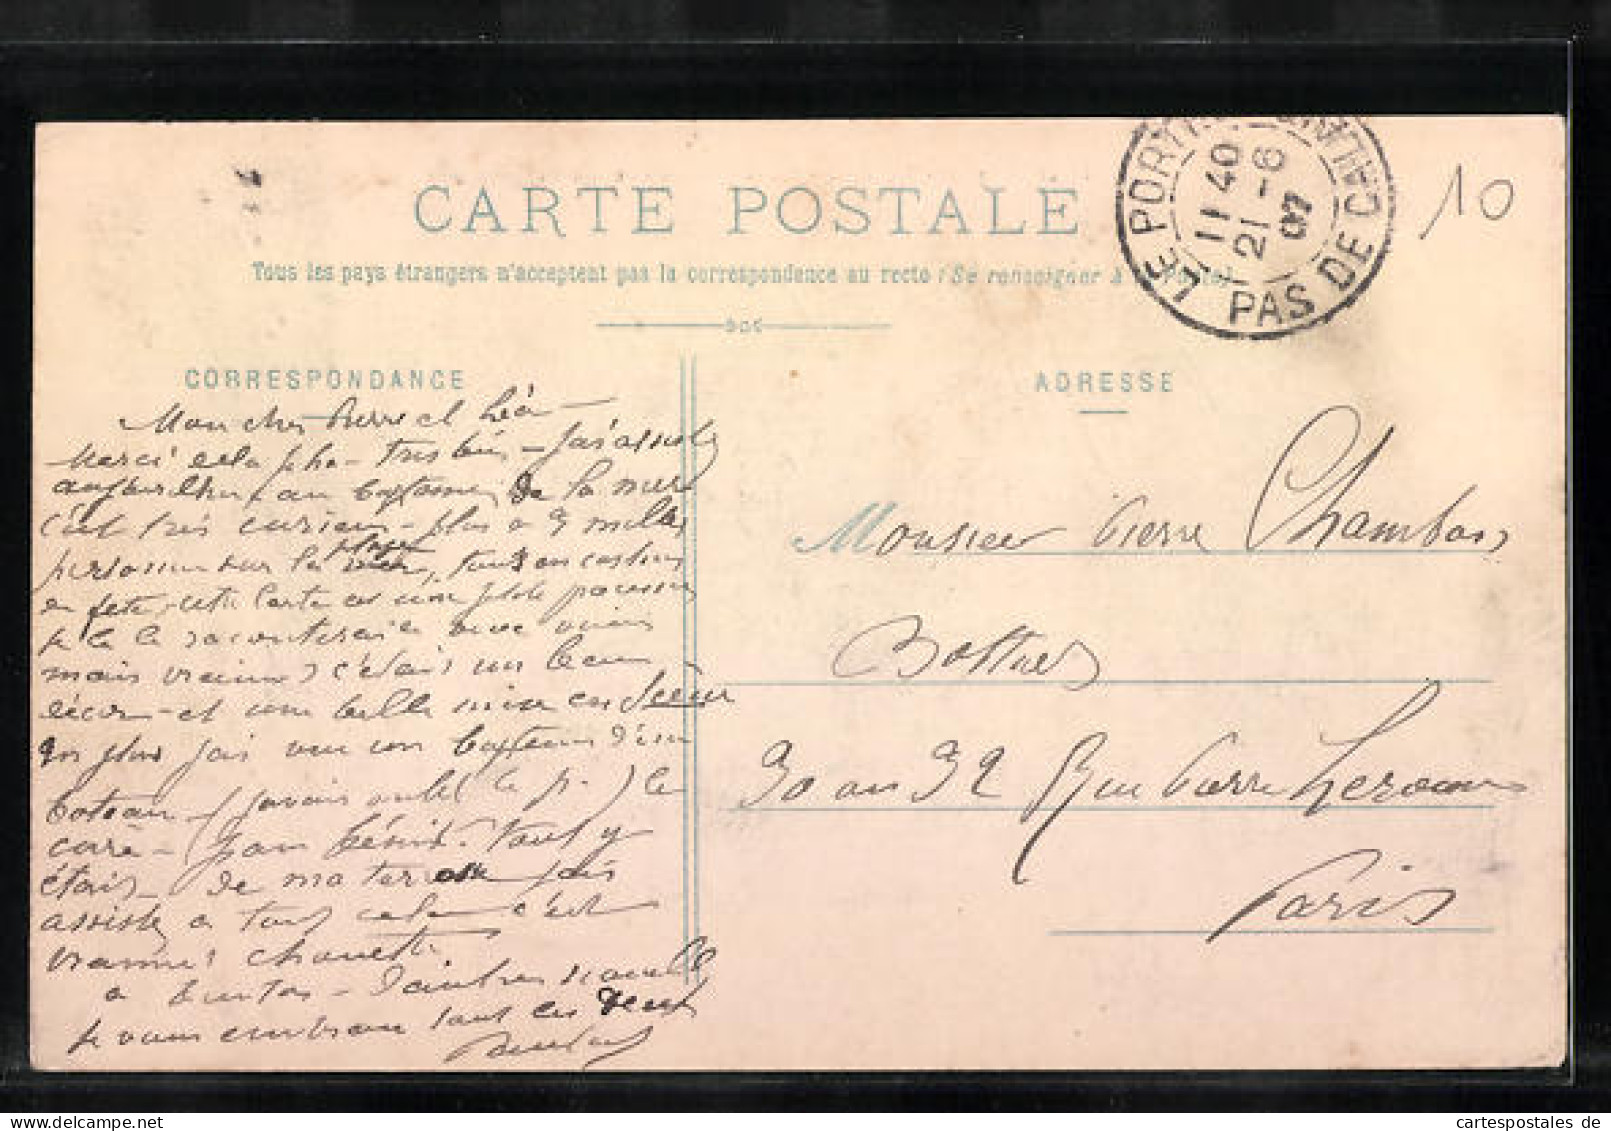 CARTE POSTALE
Tous les pays étrangers n'acceptent pas la correspondance au recto (Se renseigner à la Poste)
LE PORTEL PAS DE CALAIS
11 40
21 - 6
07
10
CORRESPONDANCE
ADRESSE
Mon cher Pierre et Léon
Merci de la pho- très bien - j'ai assisté
aujourd'hui au baptême de la mer
c'est très curieux - plus de 3 milles
personnes sur la plage, tous en costume
en fête, cette carte est une petite
je te le raconterai de vive voix
mais vraiment c'était un beau
décor - et une belle mise en scène
en plus j'ai vu un baptême d'un
bateau - (j'avais oublié le p.) le
curé - pain bénit. Tout y
était - de ma terrasse j'ai
assisté à tout cela c'est
vraiment chouette.
à bientôt - d'autres nouvelles
je vous embrasse tous les deux
Monsieur Pierre Chambon
30 ou 32 Rue Pierre Leroux
Paris
cartespostales de